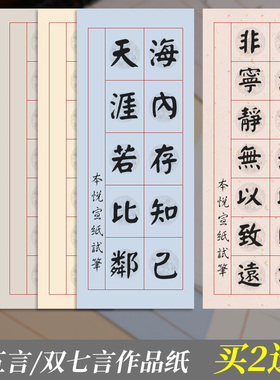 海內存知己
天涯若比鄰
本悅宣紙試筆
非寧靜無以致遠
本悅宣紙試筆
五言/双七言作品纸
买2